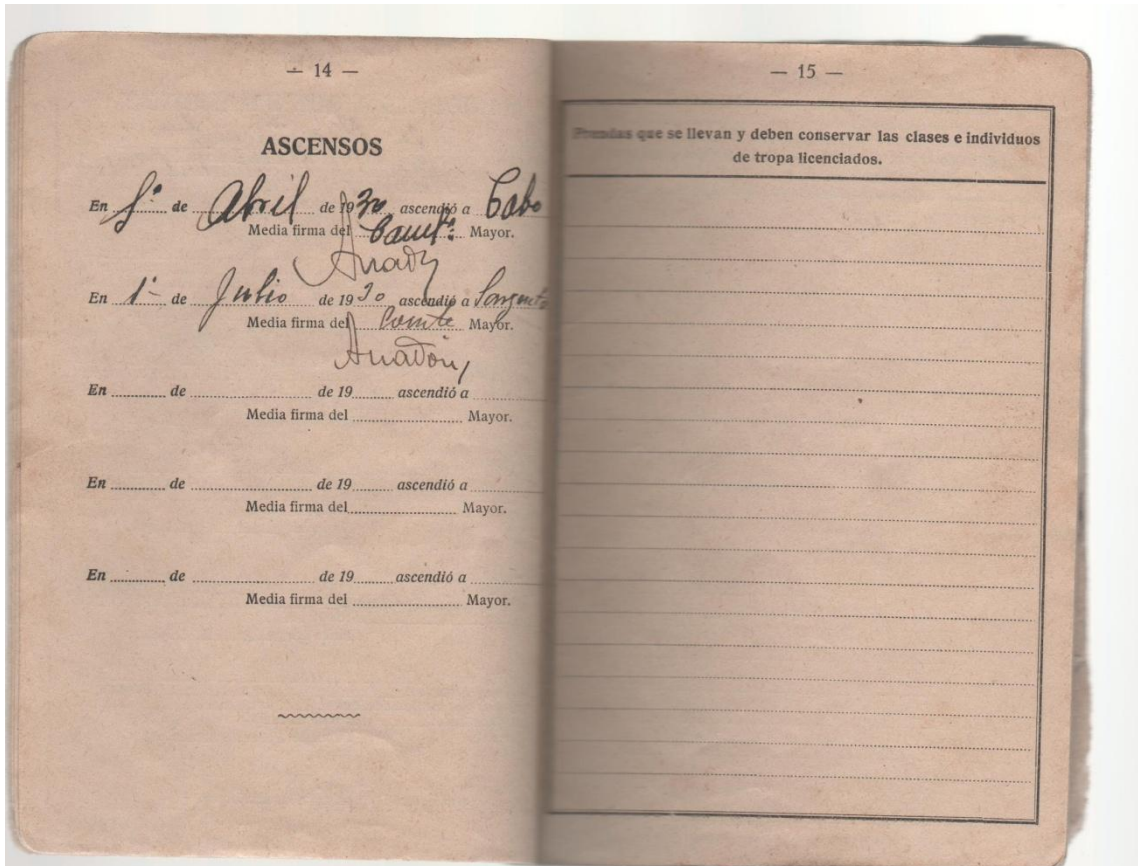 — 14 —
ASCENSOS
En 1º de Abril de 1930 ascendió a Cabo
Media firma del Comte Mayor.
Anadón
En 1º de Julio de 1930 ascendió a Sargento
Media firma del Comte Mayor.
Anadón,
En ........ de ........ de 19 ........ ascendió a ........
Media firma del ........ Mayor.
En ........ de ........ de 19 ........ ascendió a ........
Media firma del ........ Mayor.
En ........ de ........ de 19 ........ ascendió a ........
Media firma del ........ Mayor.
— 15 —
Prendas que se llevan y deben conservar las clases e individuos
de tropa licenciados.